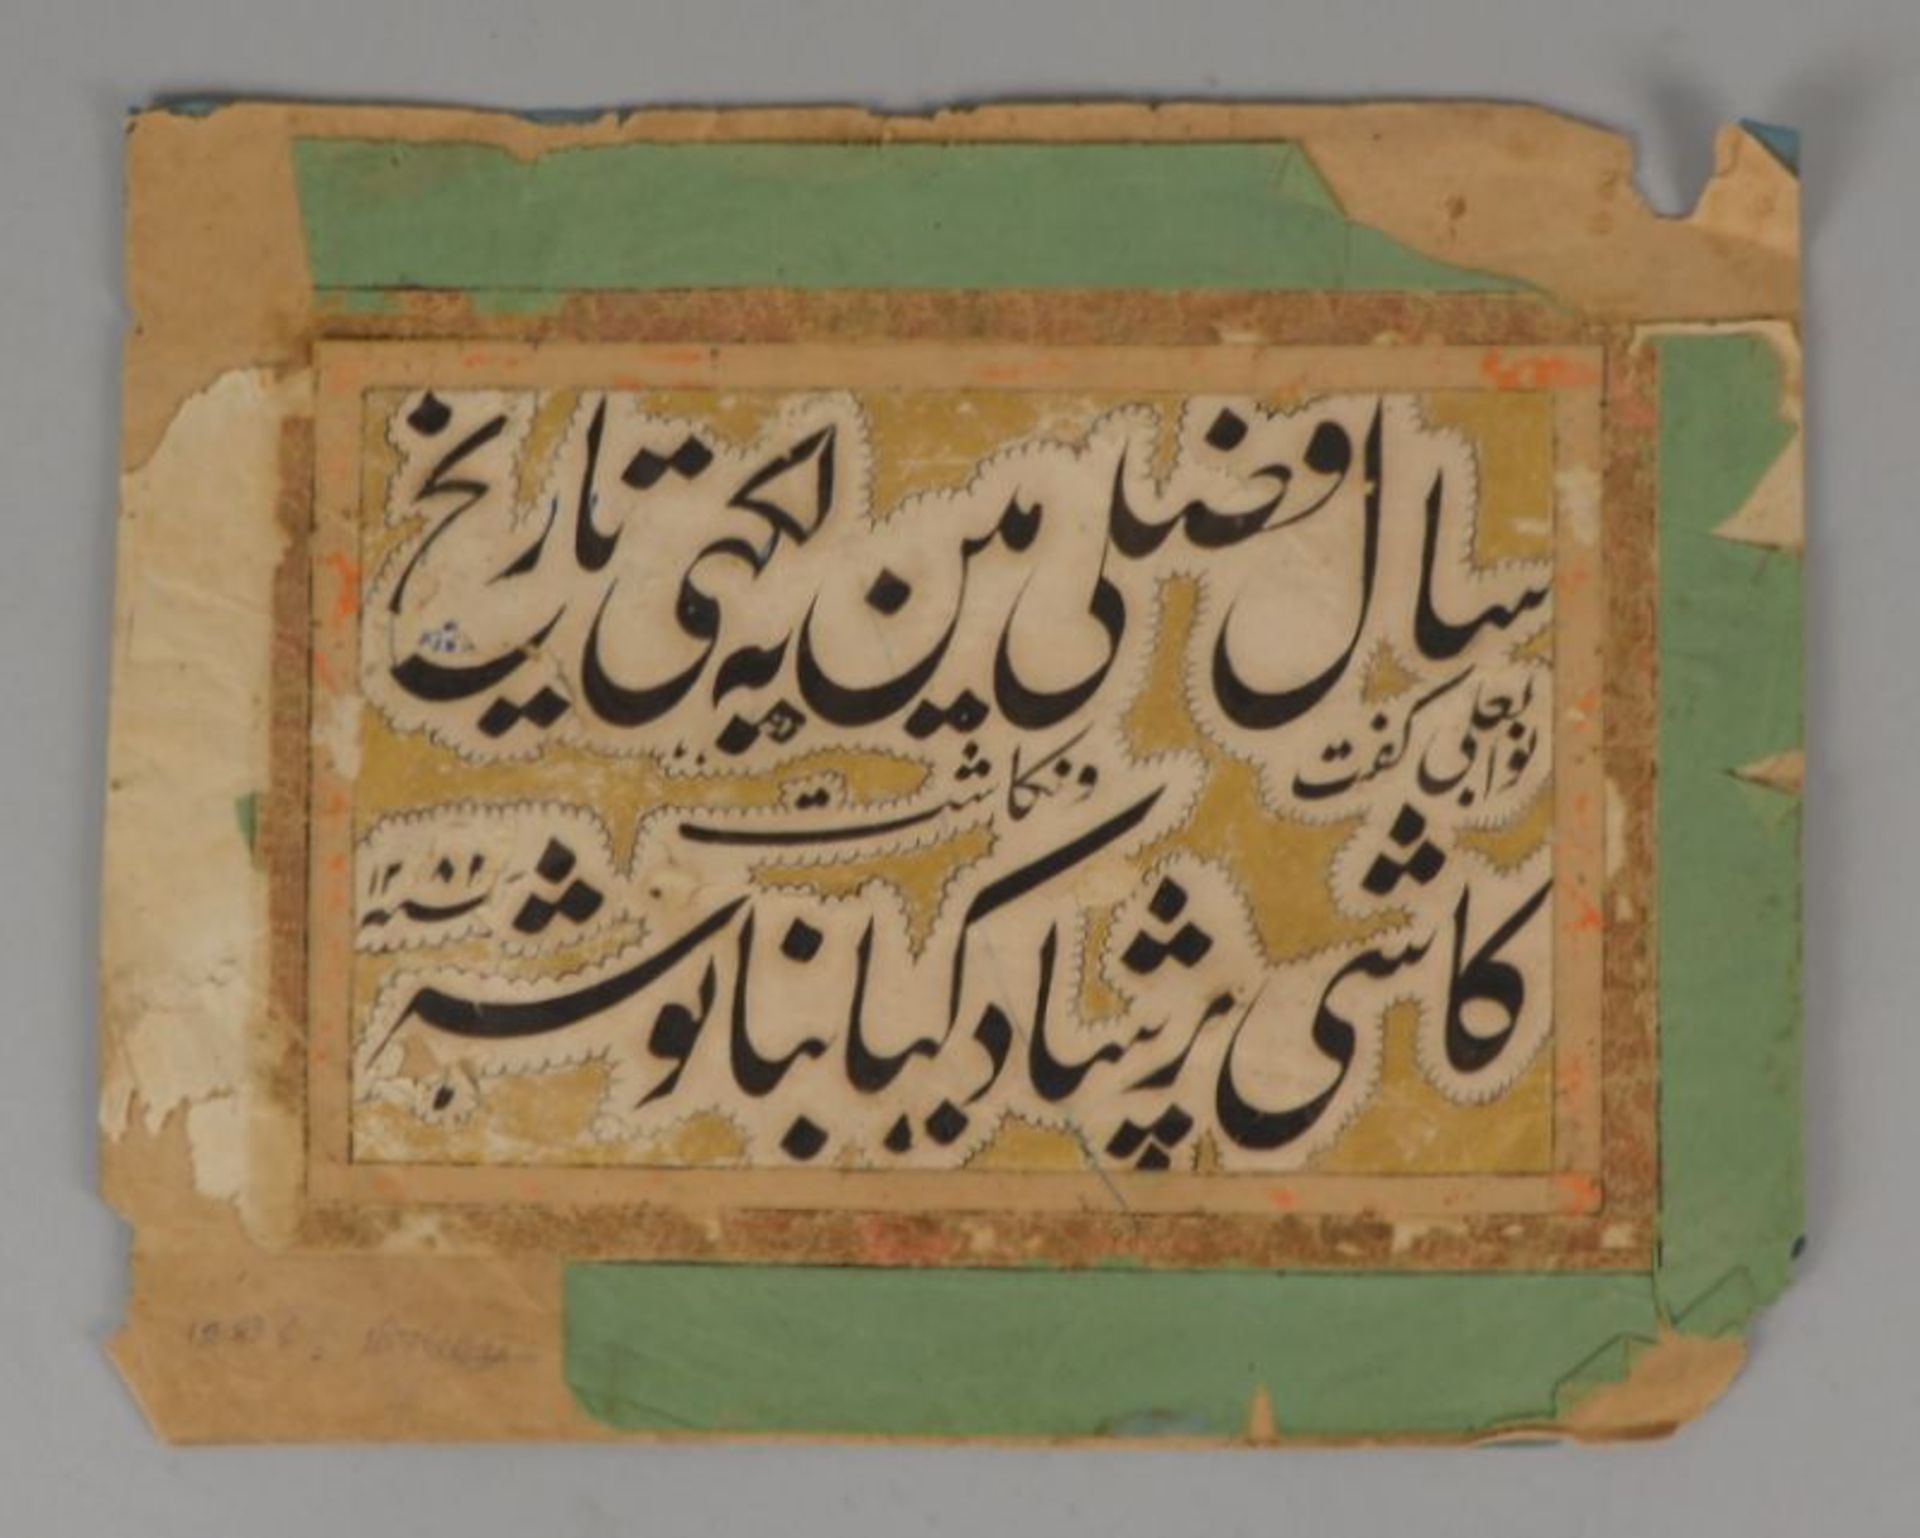 سال فضلی مین یہ لکھی تاریخ
نواب علی گفت
و نگاشت
کاشی پرشاد کیا بنا توشہ
سنہ ۱۲۸۲